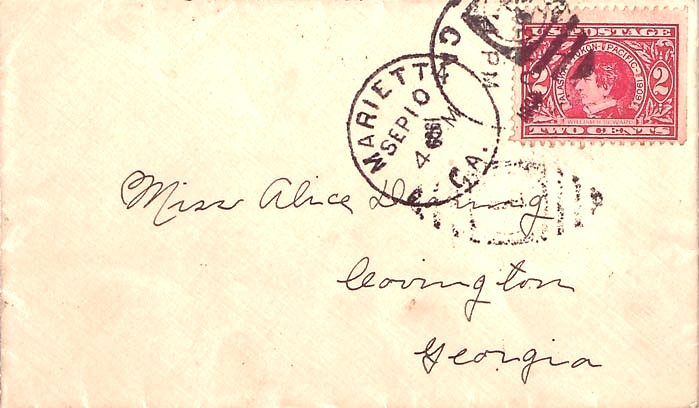 U.S. POSTAGE
ALASKA-YUKON-PACIFIC-1909
2 2
WILLIAM H. SEWARD
TWO CENTS
MARIETTA, GA.
SEP 10
4 PM
GA.
PM
Miss Alice
Covington
Georgia